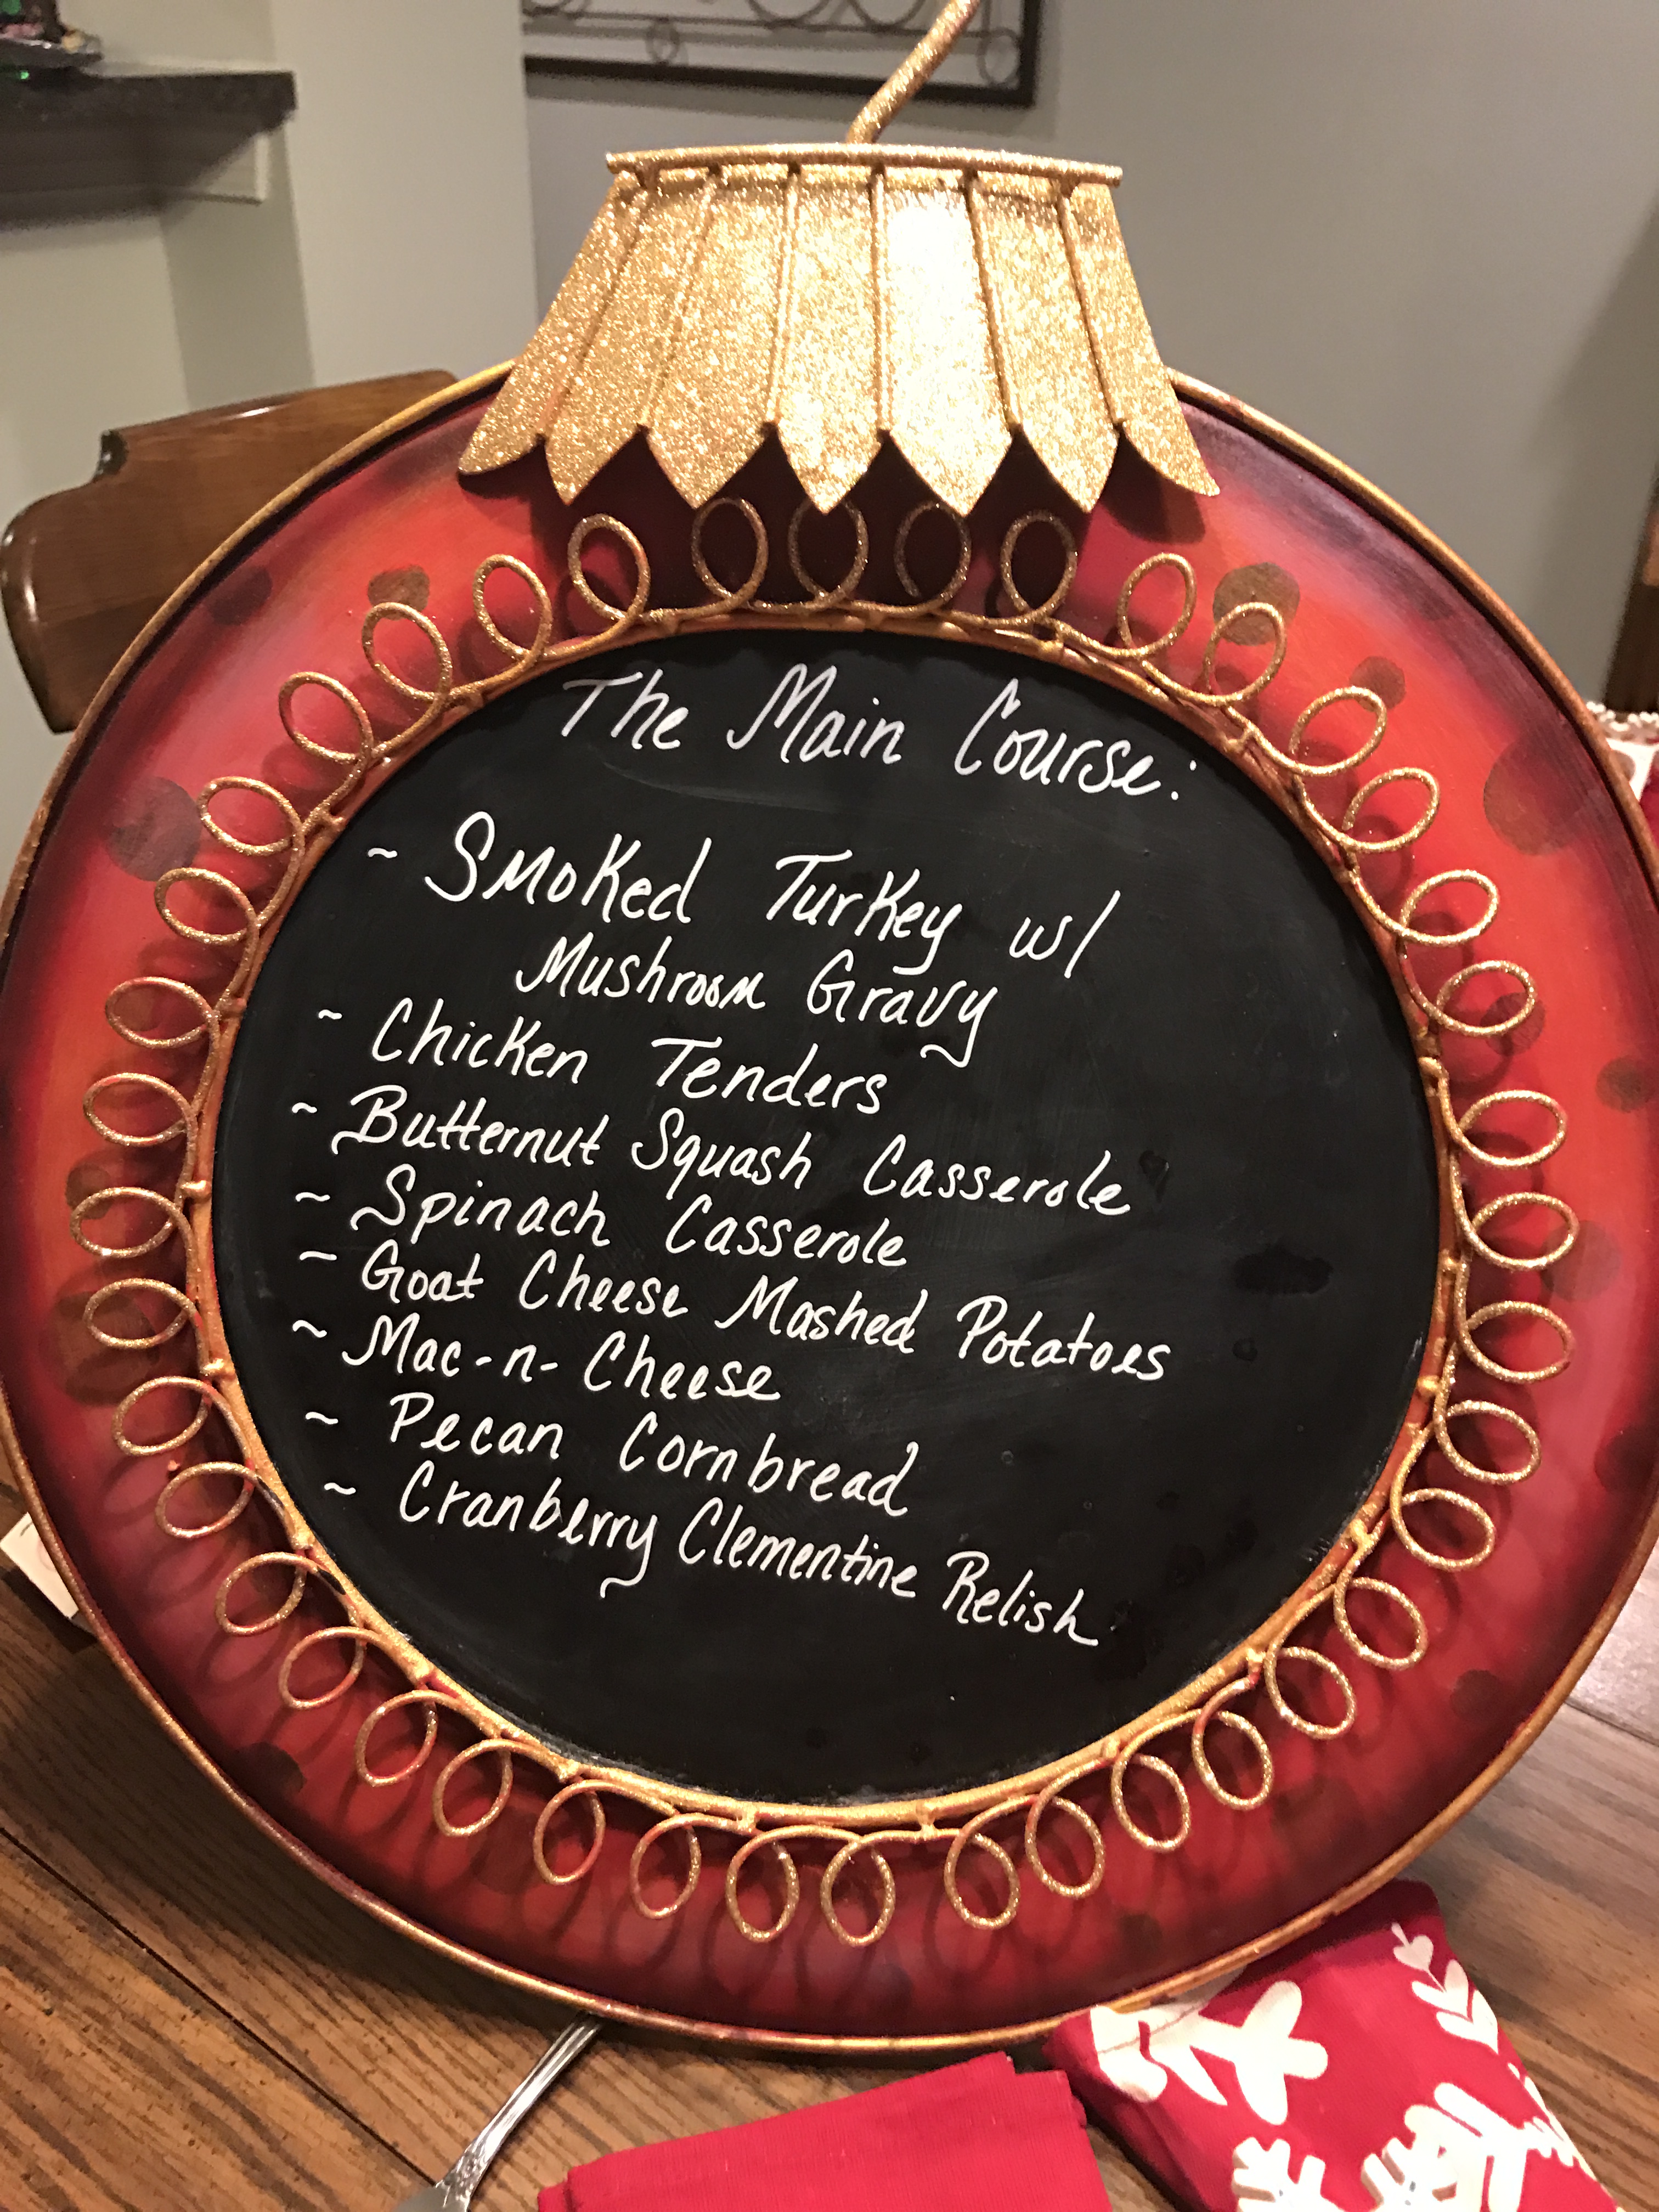 The Main Course:
~ Smoked Turkey w/
Mushroom Gravy
~ Chicken Tenders
~ Butternut Squash Casserole
~ Spinach Casserole
~ Goat Cheese Mashed Potatoes
~ Mac-n-Cheese
~ Pecan Cornbread
~ Cranberry Clementine Relish